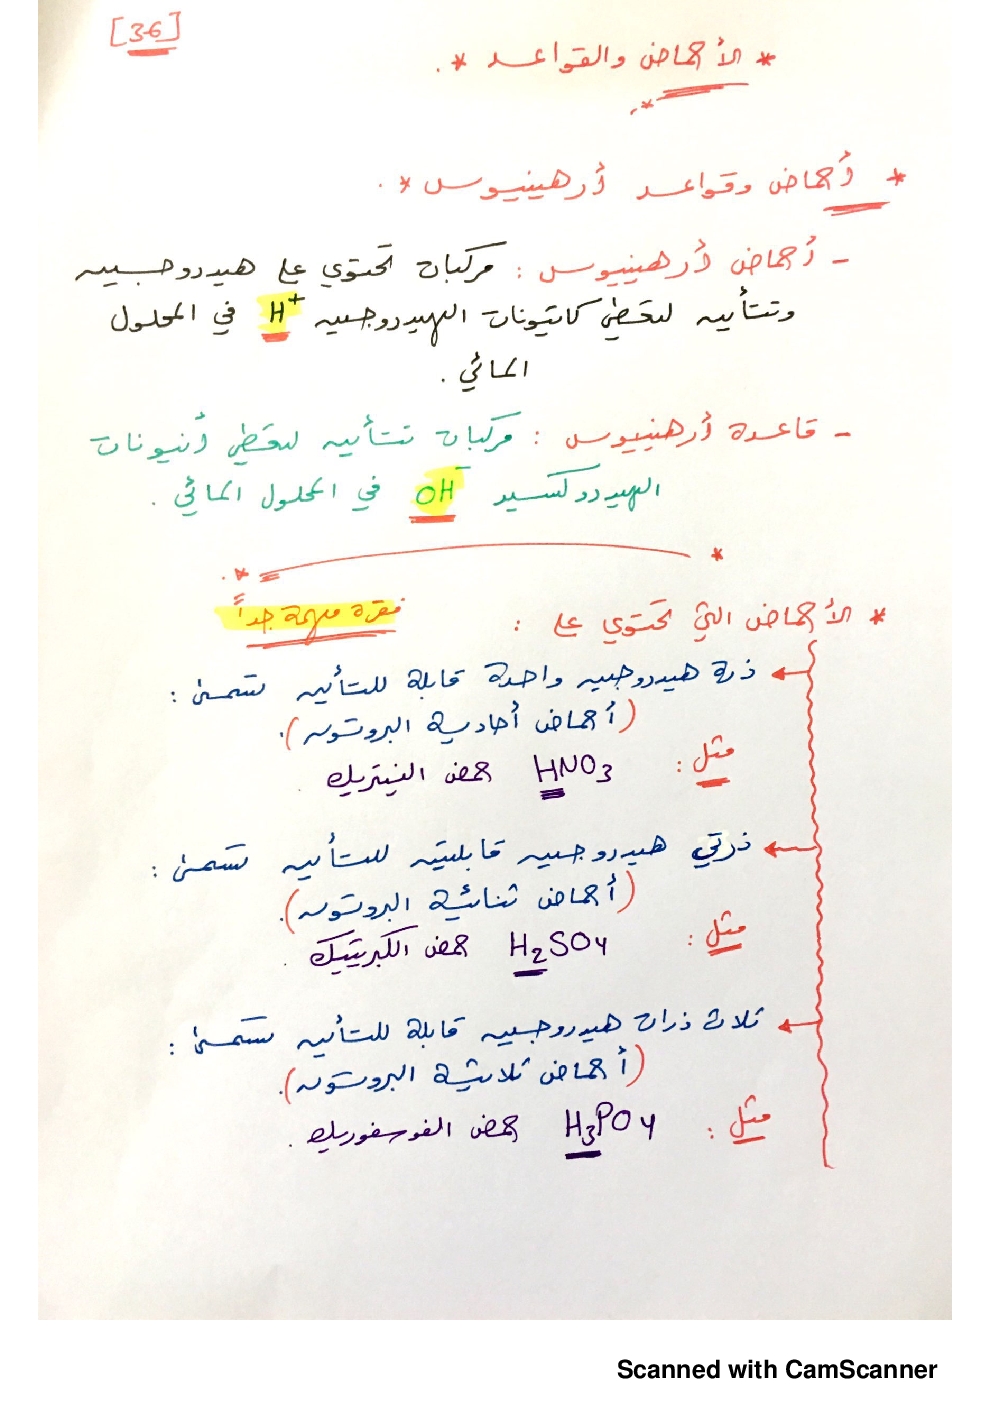 [3-6]
* الأحماض والقواعد *
* أحماض وقواعد أرهينيوس *
- أحماض أرهينيوس : مركبات تحتوي على هيدروجين
وتتأين لتعطي كاتيونات الهيدروجين H+ في المحلول
المائي .
- قاعدة أرهينيوس : مركبات تتأين لتعطي أنيونات
الهيدروكسيد OH- في المحلول المائي .
* الأحماض التي تحتوي على :
فقرة مهمة جداً
ذرة هيدروجين واحدة قابلة للتأين تسمى :
(أحماض أحادية البروتون).
مثل : HNO3 حمض النيتريك .
ذرتي هيدروجين قابلتين للتأين تسمى :
(أحماض ثنائية البروتون).
مثل : H2SO4 حمض الكبريتيك .
ثلاث ذرات هيدروجين قابلة للتأين تسمى :
(أحماض ثلاثية البروتون).
مثل : H3PO4 حمض الفوسفوريك .
Scanned with CamScanner